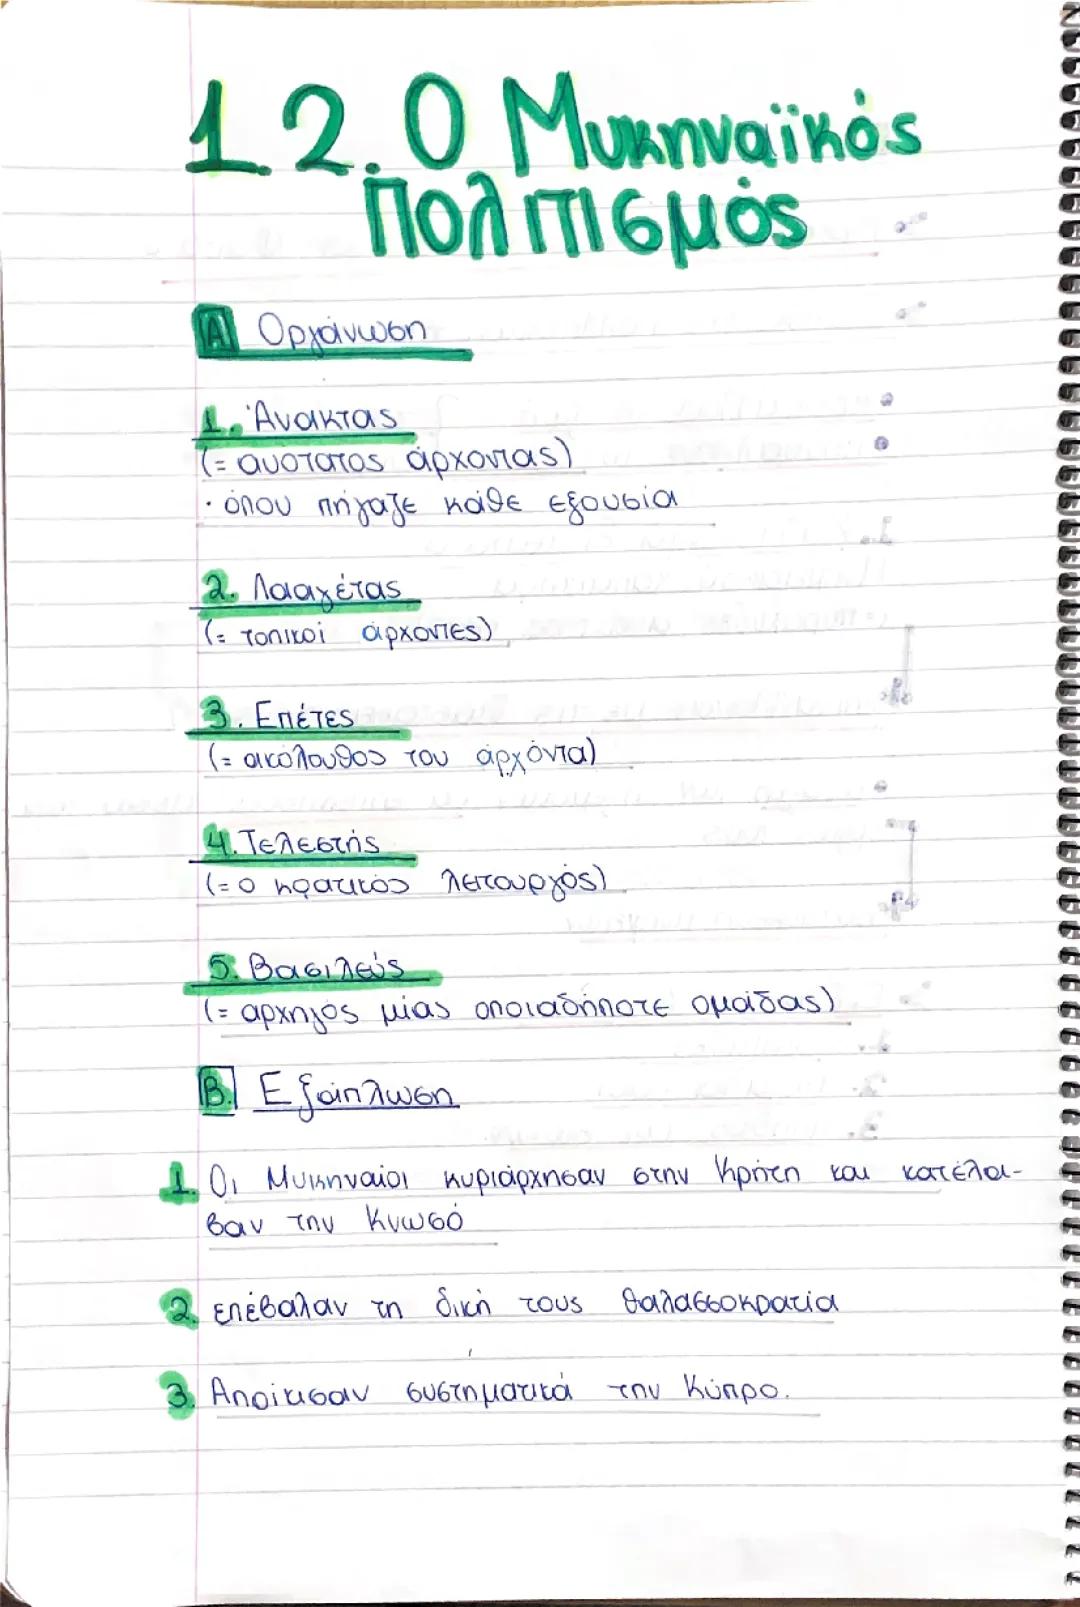 1.2. Ο Μυκηναϊκός
Πολιτισμός
Α Οργάνωση
1. Άνακτας
(= ανώτατος άρχοντας)
· όπου πήγαζε κάθε εξουσία
2. Λααγέτας
(= τοπικοί άρχοντες)
3. Επέτες
(= ακόλουθος του άρχόντα)
4. Τελεστής
(= ο κρατικός λειτουργός)
5. Βασιλεύς
(= αρχηγός μίας οποιαδήποτε ομάδας)
Β. Εξάπλωση
1. Οι Μυκηναίοι κυριάρχησαν στην Κρήτη και κατέλα-
βαν την Κνωσό
2. επέβαλαν τη δική τους θαλασσοκρατία
3. Αποίκισαν συστηματικά την Κύπρο.